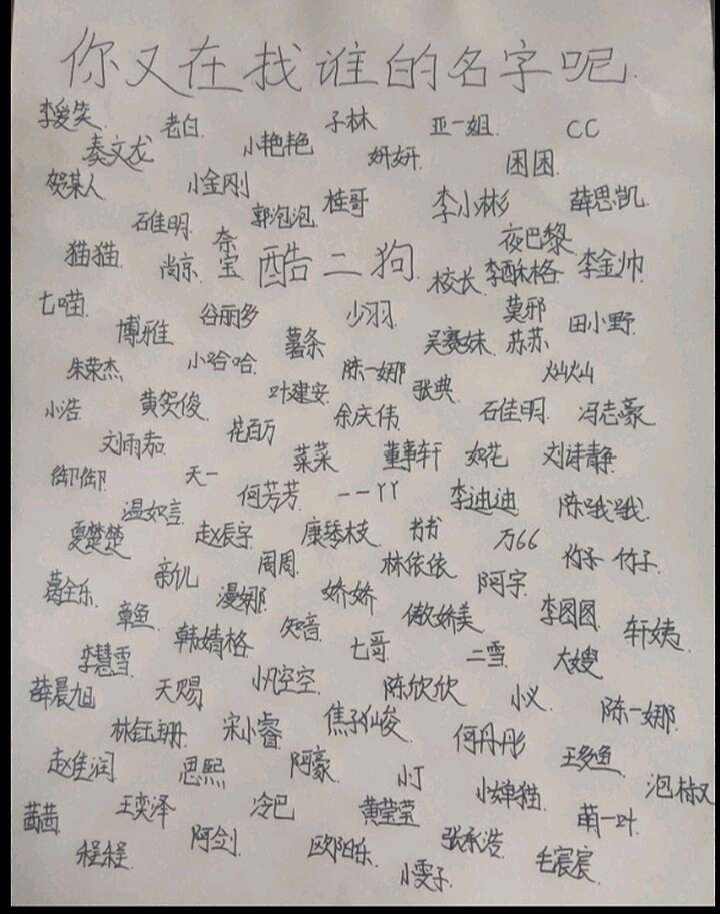 你又在找谁的名字呢
李爱笑 老白 子林 亚一姐 CC
秦文龙 小艳艳 妍妍 困困
贺某人 小金刚 桂哥 李小彬 薛思凯
石佳明 郭泡泡 夜巴黎
猫猫 尚京 奈宝 酷二狗 校长 李酥格 李金帅
七喵 谷丽多 少羽 莫邪 田小野
博雅 薯条 吴赛妹 苏苏
朱荣杰 小哈哈 陈一娜 张典 灿灿
小浩 黄贺俊 叶建安 余庆伟 石佳明 冯志豪
刘雨茄 花百万 菜菜 董事轩 如花 刘诗静
御御 天一 何芳芳 一一丫丫 李迪迪 陈哦哦
温如言 赵辰宇 康琴枝 书书 万66
夏楚楚 周周 林依依 竹子 竹子
葛全乐 新儿 漫娜 娇娇 阿宇
章鱼 韩婧格 知音 七哥 傲娇美 李图图 轩姨
李慧雪 二雪 大嫂
薛晨旭 天赐 小空空 陈欣欣 小义 陈一娜
林钰珊 宋小睿 焦孙俊 何丹丹
赵佳润 思熙 阿豪 小丁 王多鱼 泡椒
茜茜 王奕泽 冷巴 黄莹莹 小婵猫 萌一叶
程程 阿剑 欧阳乐 张承浩 毛宸宸
小雯子